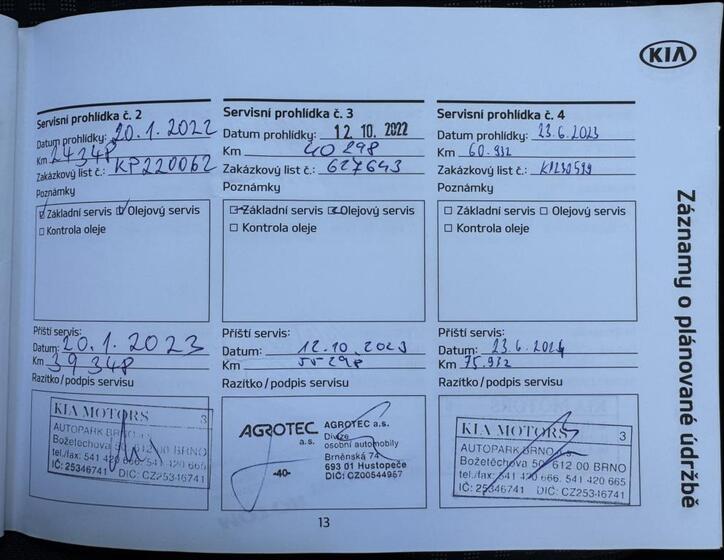 KIA
Záznamy o plánované údržbě
Servisní prohlídka č. 2
Datum prohlídky: 20.1.2022
Km 24348
Zakázkový list č.: KP220062
Poznámky
Základní servis Olejový servis
Kontrola oleje
Příští servis:
Datum: 20.1.2023
Km 39348
Razítko/podpis servisu
KIA MOTORS 3
AUTOPARK BRNO
Božetěchova 50, 612 00 BRNO
tel./fax: 541 420 666, 541 420 665
IČ: 25346741 DIČ: CZ25346741
Servisní prohlídka č. 3
Datum prohlídky: 12.10.2022
Km 40298
Zakázkový list č.: 627643
Poznámky
Základní servis Olejový servis
Kontrola oleje
Příští servis:
Datum: 12.10.2023
Km 55298
Razítko/podpis servisu
AGROTEC a.s.
AGROTEC a.s.
Divize
osobní automobily
Brněnská 74
693 01 Hustopeče
DIČ: CZ00544957
-40-
Servisní prohlídka č. 4
Datum prohlídky: 23.6.2023
Km 60.932
Zakázkový list č.:
Poznámky
Základní servis Olejový servis
Kontrola oleje
Příští servis:
Datum: 23.6.2024
Km 75.932
Razítko/podpis servisu
KIA MOTORS 3
AUTOPARK BRNO
Božetěchova 50, 612 00 BRNO
tel./fax: 541 420 666, 541 420 665
IČ: 25346741 DIČ: CZ25346741
13